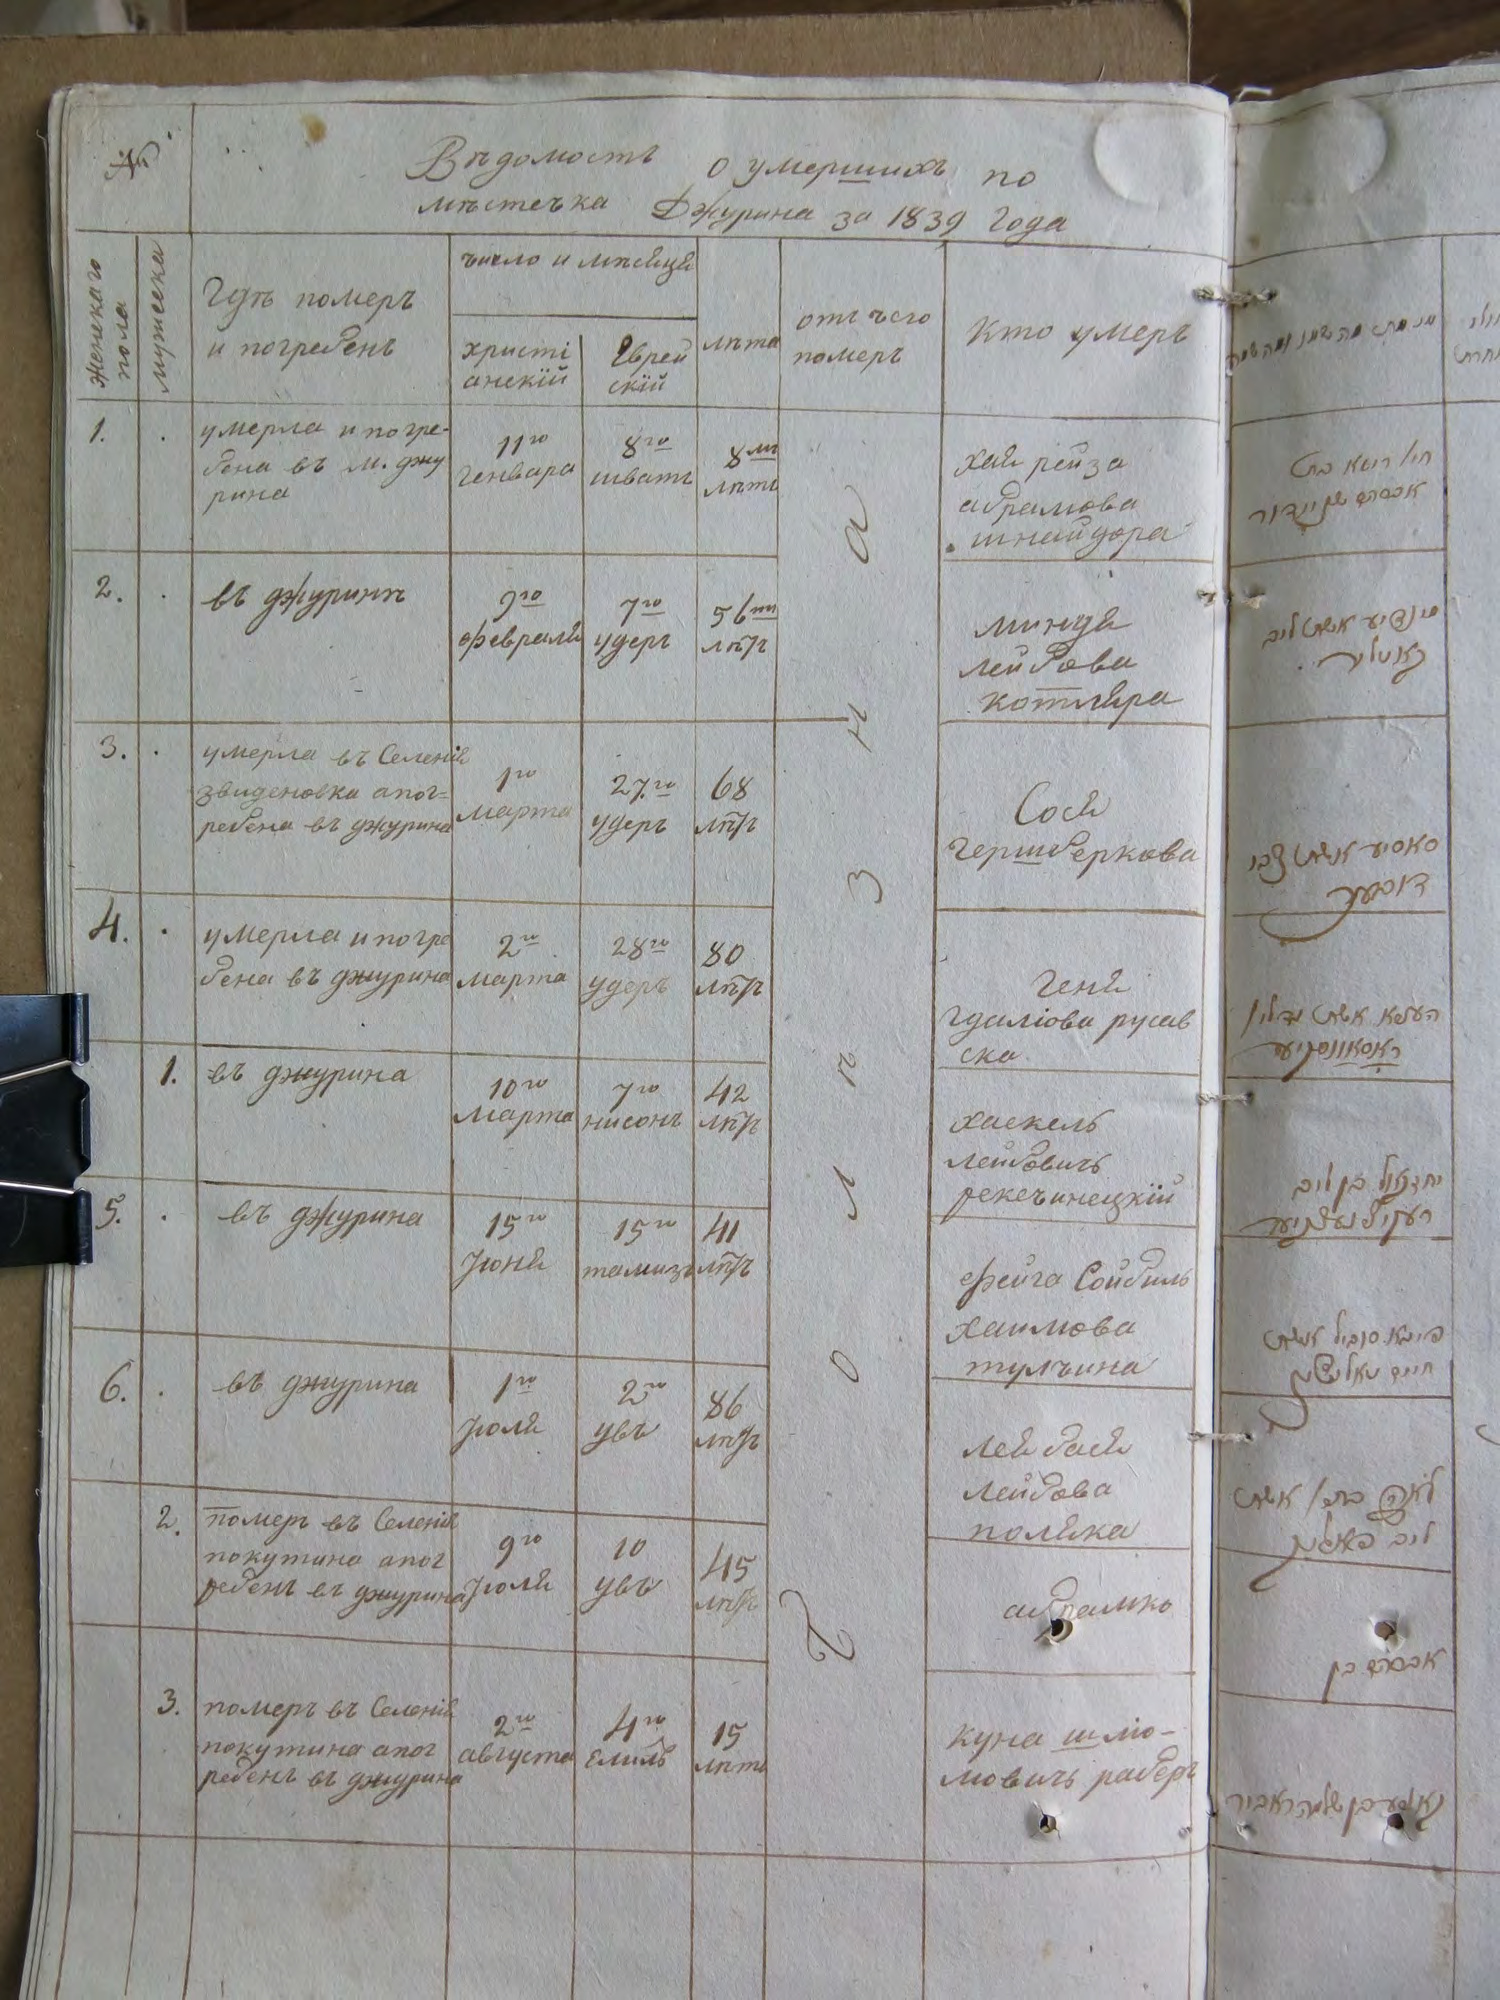 Вѣдомость о умершихъ по
мѣстечка Джурина за 1839 Года
женскаго пола
мужеска
Гдѣ померъ
и погребенъ
число и мѣсяця
христі
анскій
Еврей
скій
лѣта
отъ чего
померъ
Кто умеръ
1.
умерла и погре-
бена въ м. джу
рина
11го
генвара
8го
шватъ
8ми
лѣтъ
хая рейза
абрамова
шнайдора
2.
въ джуринѣ
9го
февраля
7го
удеръ
56ти
лѣтъ
миндя
лейбова
котляра
3.
умерла въ Селенія
звиденовка апог=
ребена въ джурина
1го
марта
27го
удеръ
68
лѣтъ
Сося
гершберкова
4.
умерла и погре
бена въ джурина
2го
марта
28го
удеръ
80
лѣтъ
геня
гдаліова русав
ска
1.
въ джурина
10го
марта
7го
нисонъ
42
лѣтъ
хаскель
лейбовичь
рекечинецкій
5.
въ джурина
15го
Іюня
15го
тамизъ
41
лѣтъ
фейга Сойбиль
хаимова
тульчина
6.
въ джурина
1го
Іюля
2го
увъ
86
лѣтъ
лей бася
лейбова
поляка
2.
померъ въ Селенія
покутина апог
ребенъ въ джурина
9го
Іюля
10
увъ
45
лѣтъ
абрамко
3.
померъ въ Селенія
покутина апог
ребенъ въ джурина
2го
августа
4го
Елиль
15
лѣтъ
куна шлио-
мовичь раберъ
חי' רייזא בת
אברהם שניידור
מינדיע אשת ליב
קאטליר
סאסיע אשת צבי
העניא אשת גדליי
יחזקאל בן ליב
פייגא סוביל אשת
חיים טאלטשין
לאה בתי' אשת
ליב פאליק
אברהם בן
קונע בן שלמה ראביר